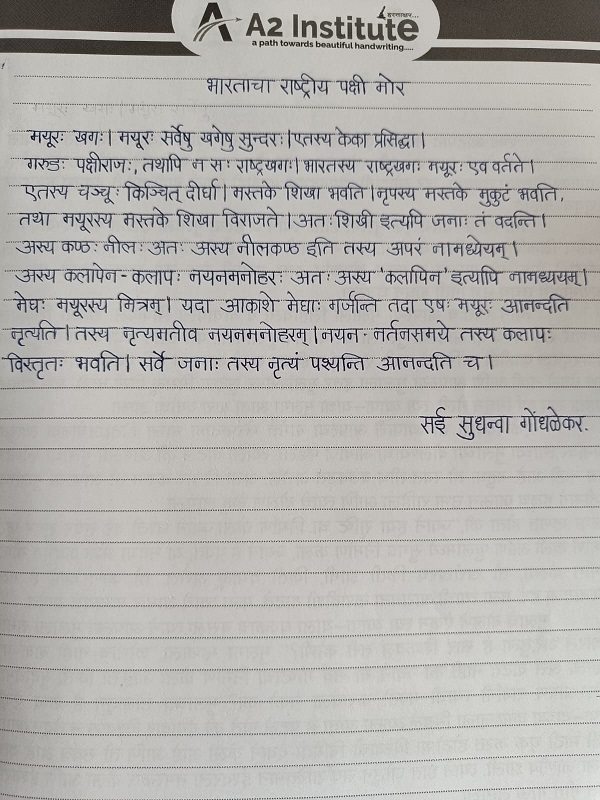 हस्ताक्षर...
A2 Institute
a path towards beautiful handwriting....
भारताचा राष्ट्रीय पक्षी मोर
मयूरः खगः। मयूरः सर्वेषु खगेषु सुन्दरः। एतस्य केका प्रसिद्धा।
गरुडः पक्षीराजः, तथापि न सः राष्ट्रखगः। भारतस्य राष्ट्रखगः मयूरः एव वर्तते।
एतस्य चञ्चूः किञ्चित् दीर्घा। मस्तके शिखा भवति। नृपस्य मस्तके मुकुटं भवति,
तथा मयूरस्य मस्तके शिखा विराजते। अतः शिखी इत्यपि जनाः तं वदन्ति।
अस्य कण्ठः नीलः अतः अस्य नीलकण्ठ इति तस्य अपरं नामध्येयम्।
अस्य कलापेन - कलापः नयनमनोहरः अतः अस्य 'कलापिन' इत्यपि नामध्ययम्।
मेघः मयूरस्य मित्रम्। यदा आकाशे मेघाः गर्जन्ति तदा एषः मयूरः आनन्दति
नृत्यति। तस्य नृत्यमतीव नयनमनोहरम्। नयन - नर्तनसमये तस्य कलापः
विस्तृतः भवति। सर्वे जनाः तस्य नृत्यं पश्यन्ति आनन्दति च।
सई सुधन्वा गोंधळेकर.